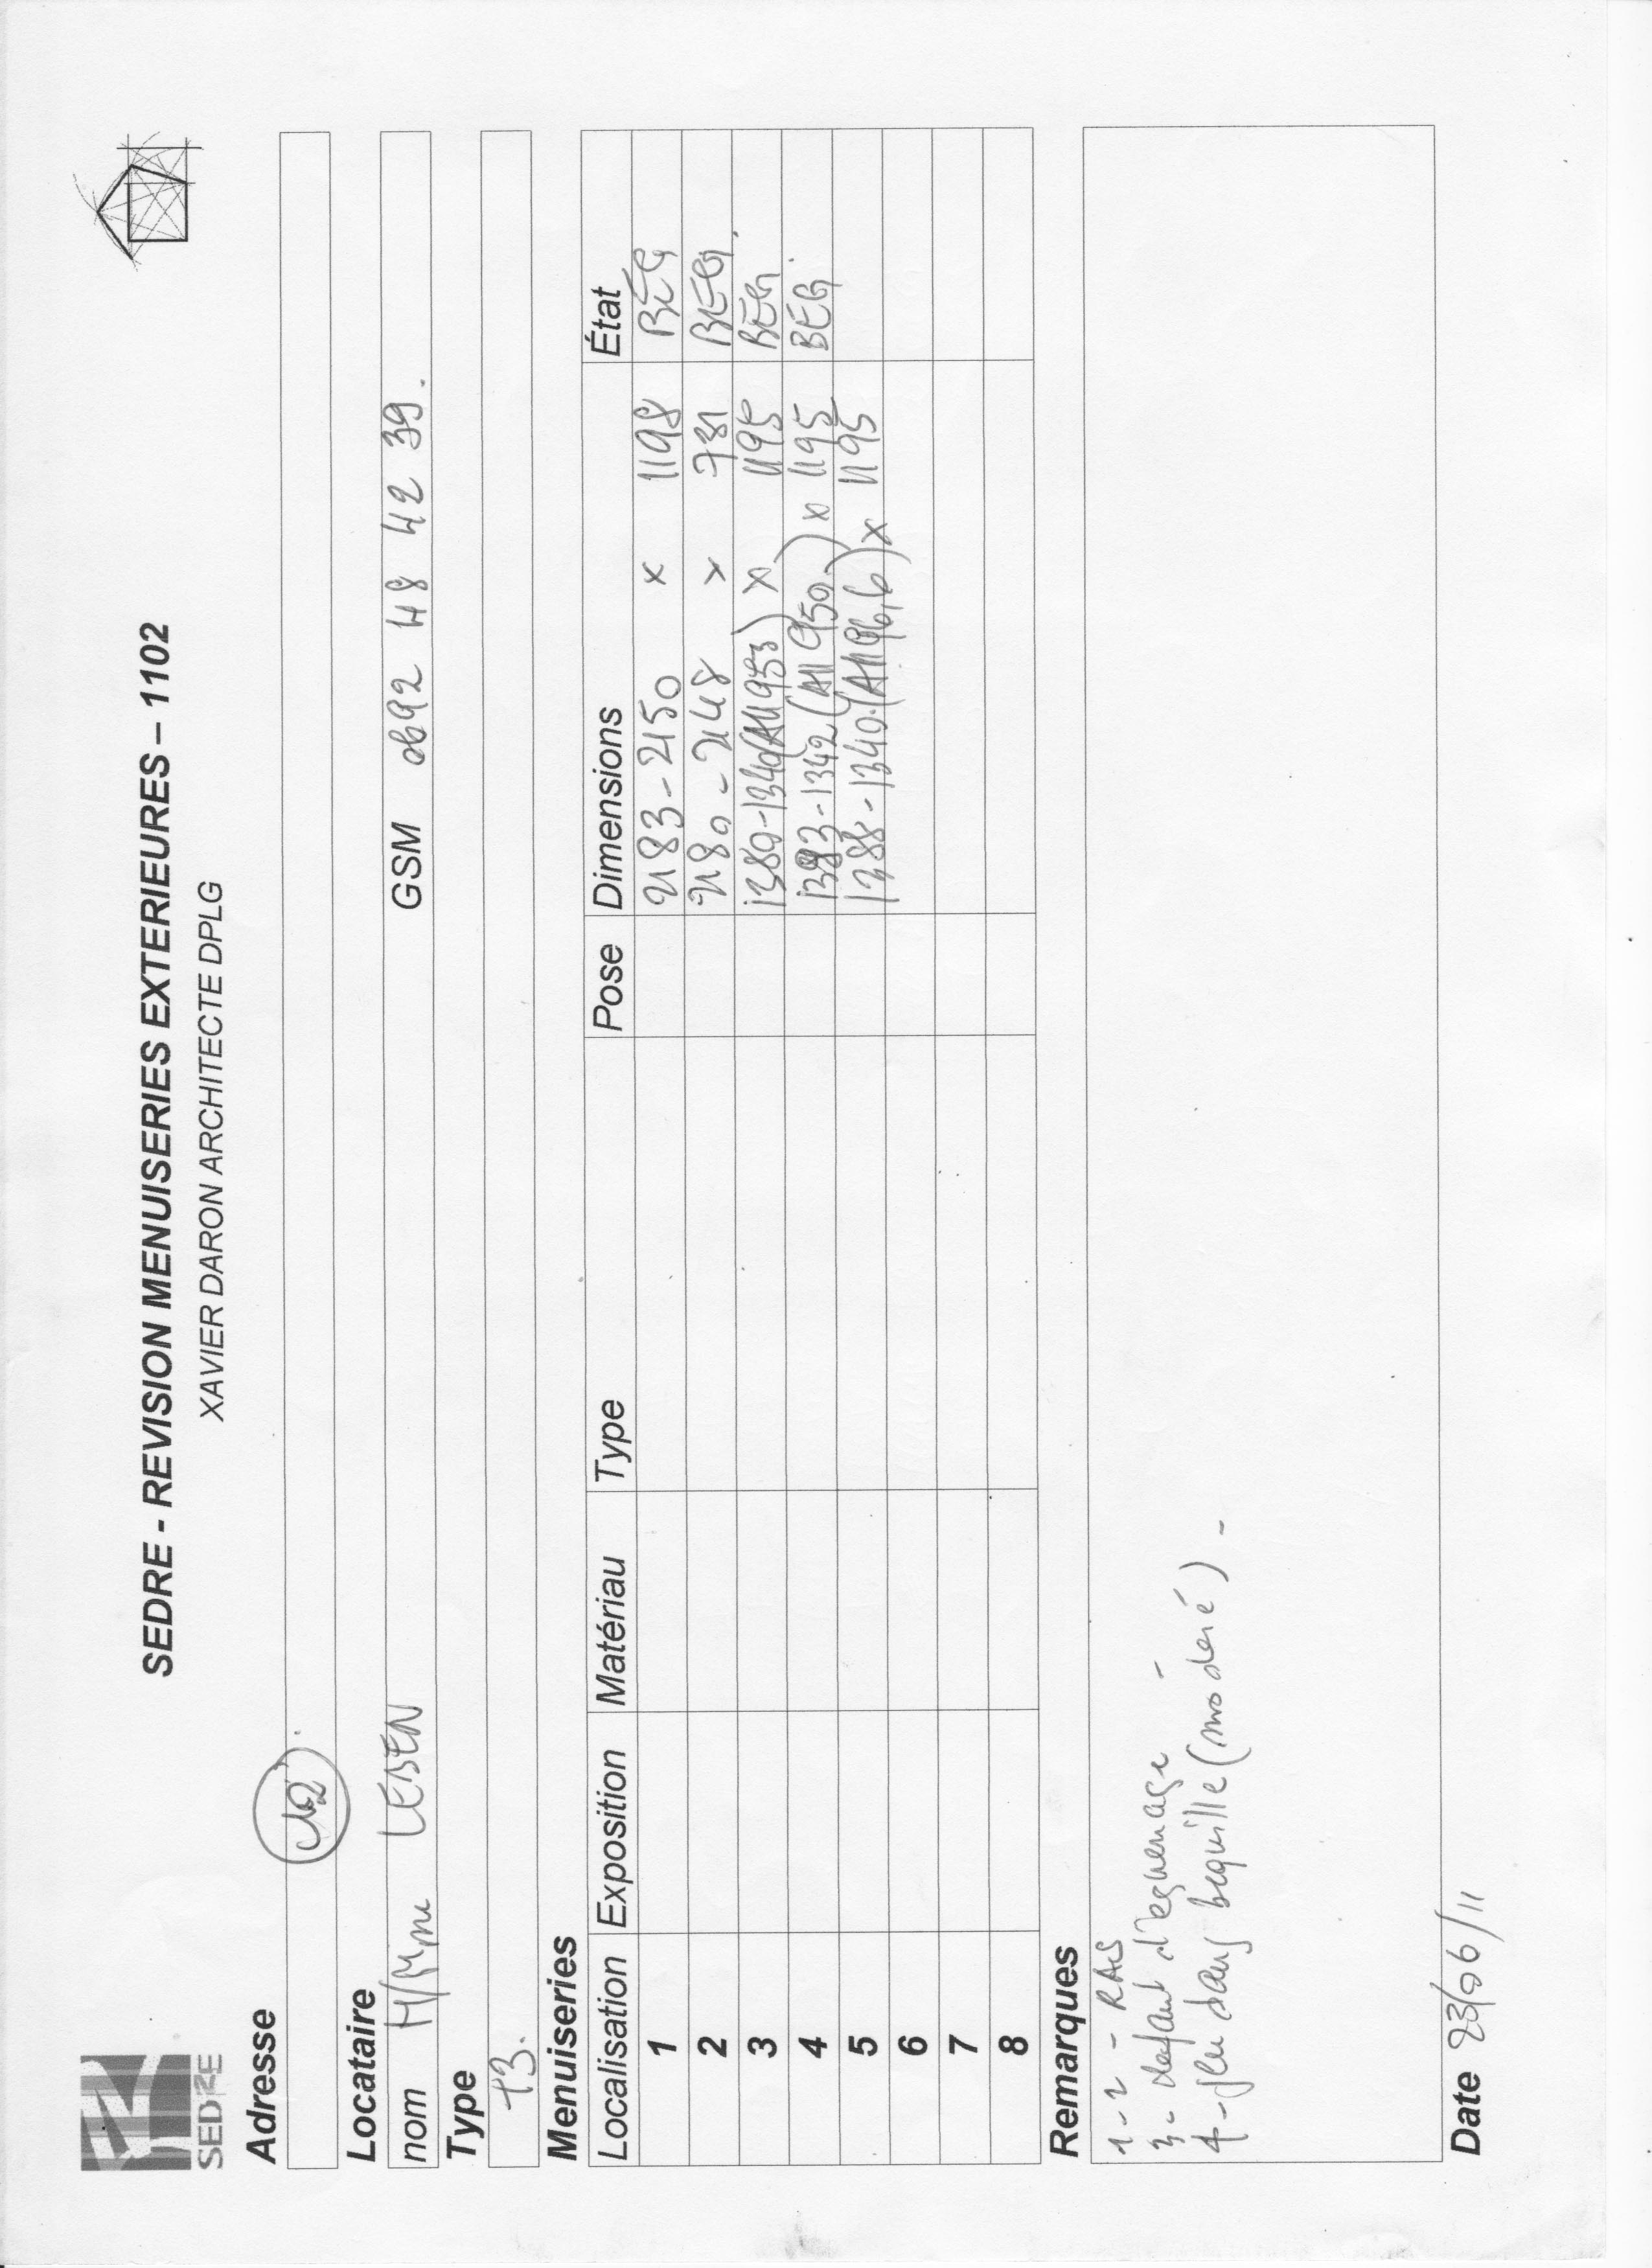 SEDRE
SEDRE - REVISION MENUISERIES EXTERIEURES – 1102
XAVIER DARON ARCHITECTE DPLG
Adresse
N°2
Locataire
nom M/Mme LEBEN GSM 0692 48 42 39.
Type
T3.
Menuiseries
Localisation Exposition Matériau Type Pose Dimensions État
1 2183 - 2150 x 1198 BEG
2 2180 - 2148 x 781 BEG.
3 1380-1340 (All 953) x 1195 BEG
4 1383-1342 (All 950) x 1195 BEG.
5 1388-1340 (All 96,6) x 1195
6
7
8
Remarques
1 - 2 - RAS
3 - defaut d'equerrage -
4 - Jeu dans bequille (modéré) -
Date 23/06/11